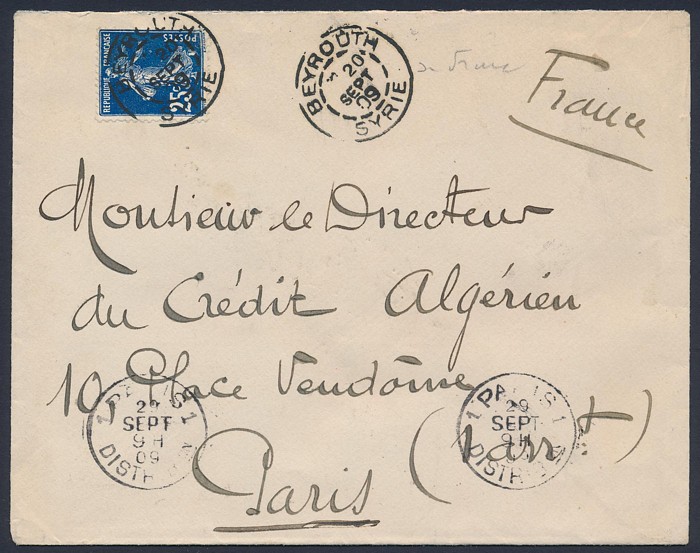 REPUBLIQUE FRANÇAISE
POSTES
25c
BEYROUTH
SYRIE
BEYROUTH
20
SEPT
09
SYRIE
France
Monsieur le Directeur
du Crédit Algérien
10, Place Vendôme
Paris (1 arrt)
1 PARIS 1
29
SEPT
9H
09
DISTRIB
1 PARIS 1
29
SEPT
9H
DISTRIB